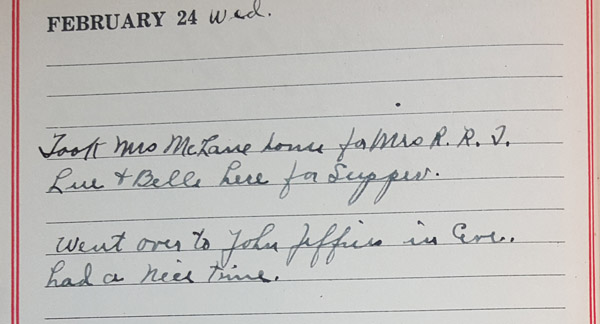 FEBRUARY 24 Wed.
Took Mrs McLane home for Mrs R. R. J.
Lue + Belle here for Supper.
Went over to John Jeffries in Eve.
had a nice time.